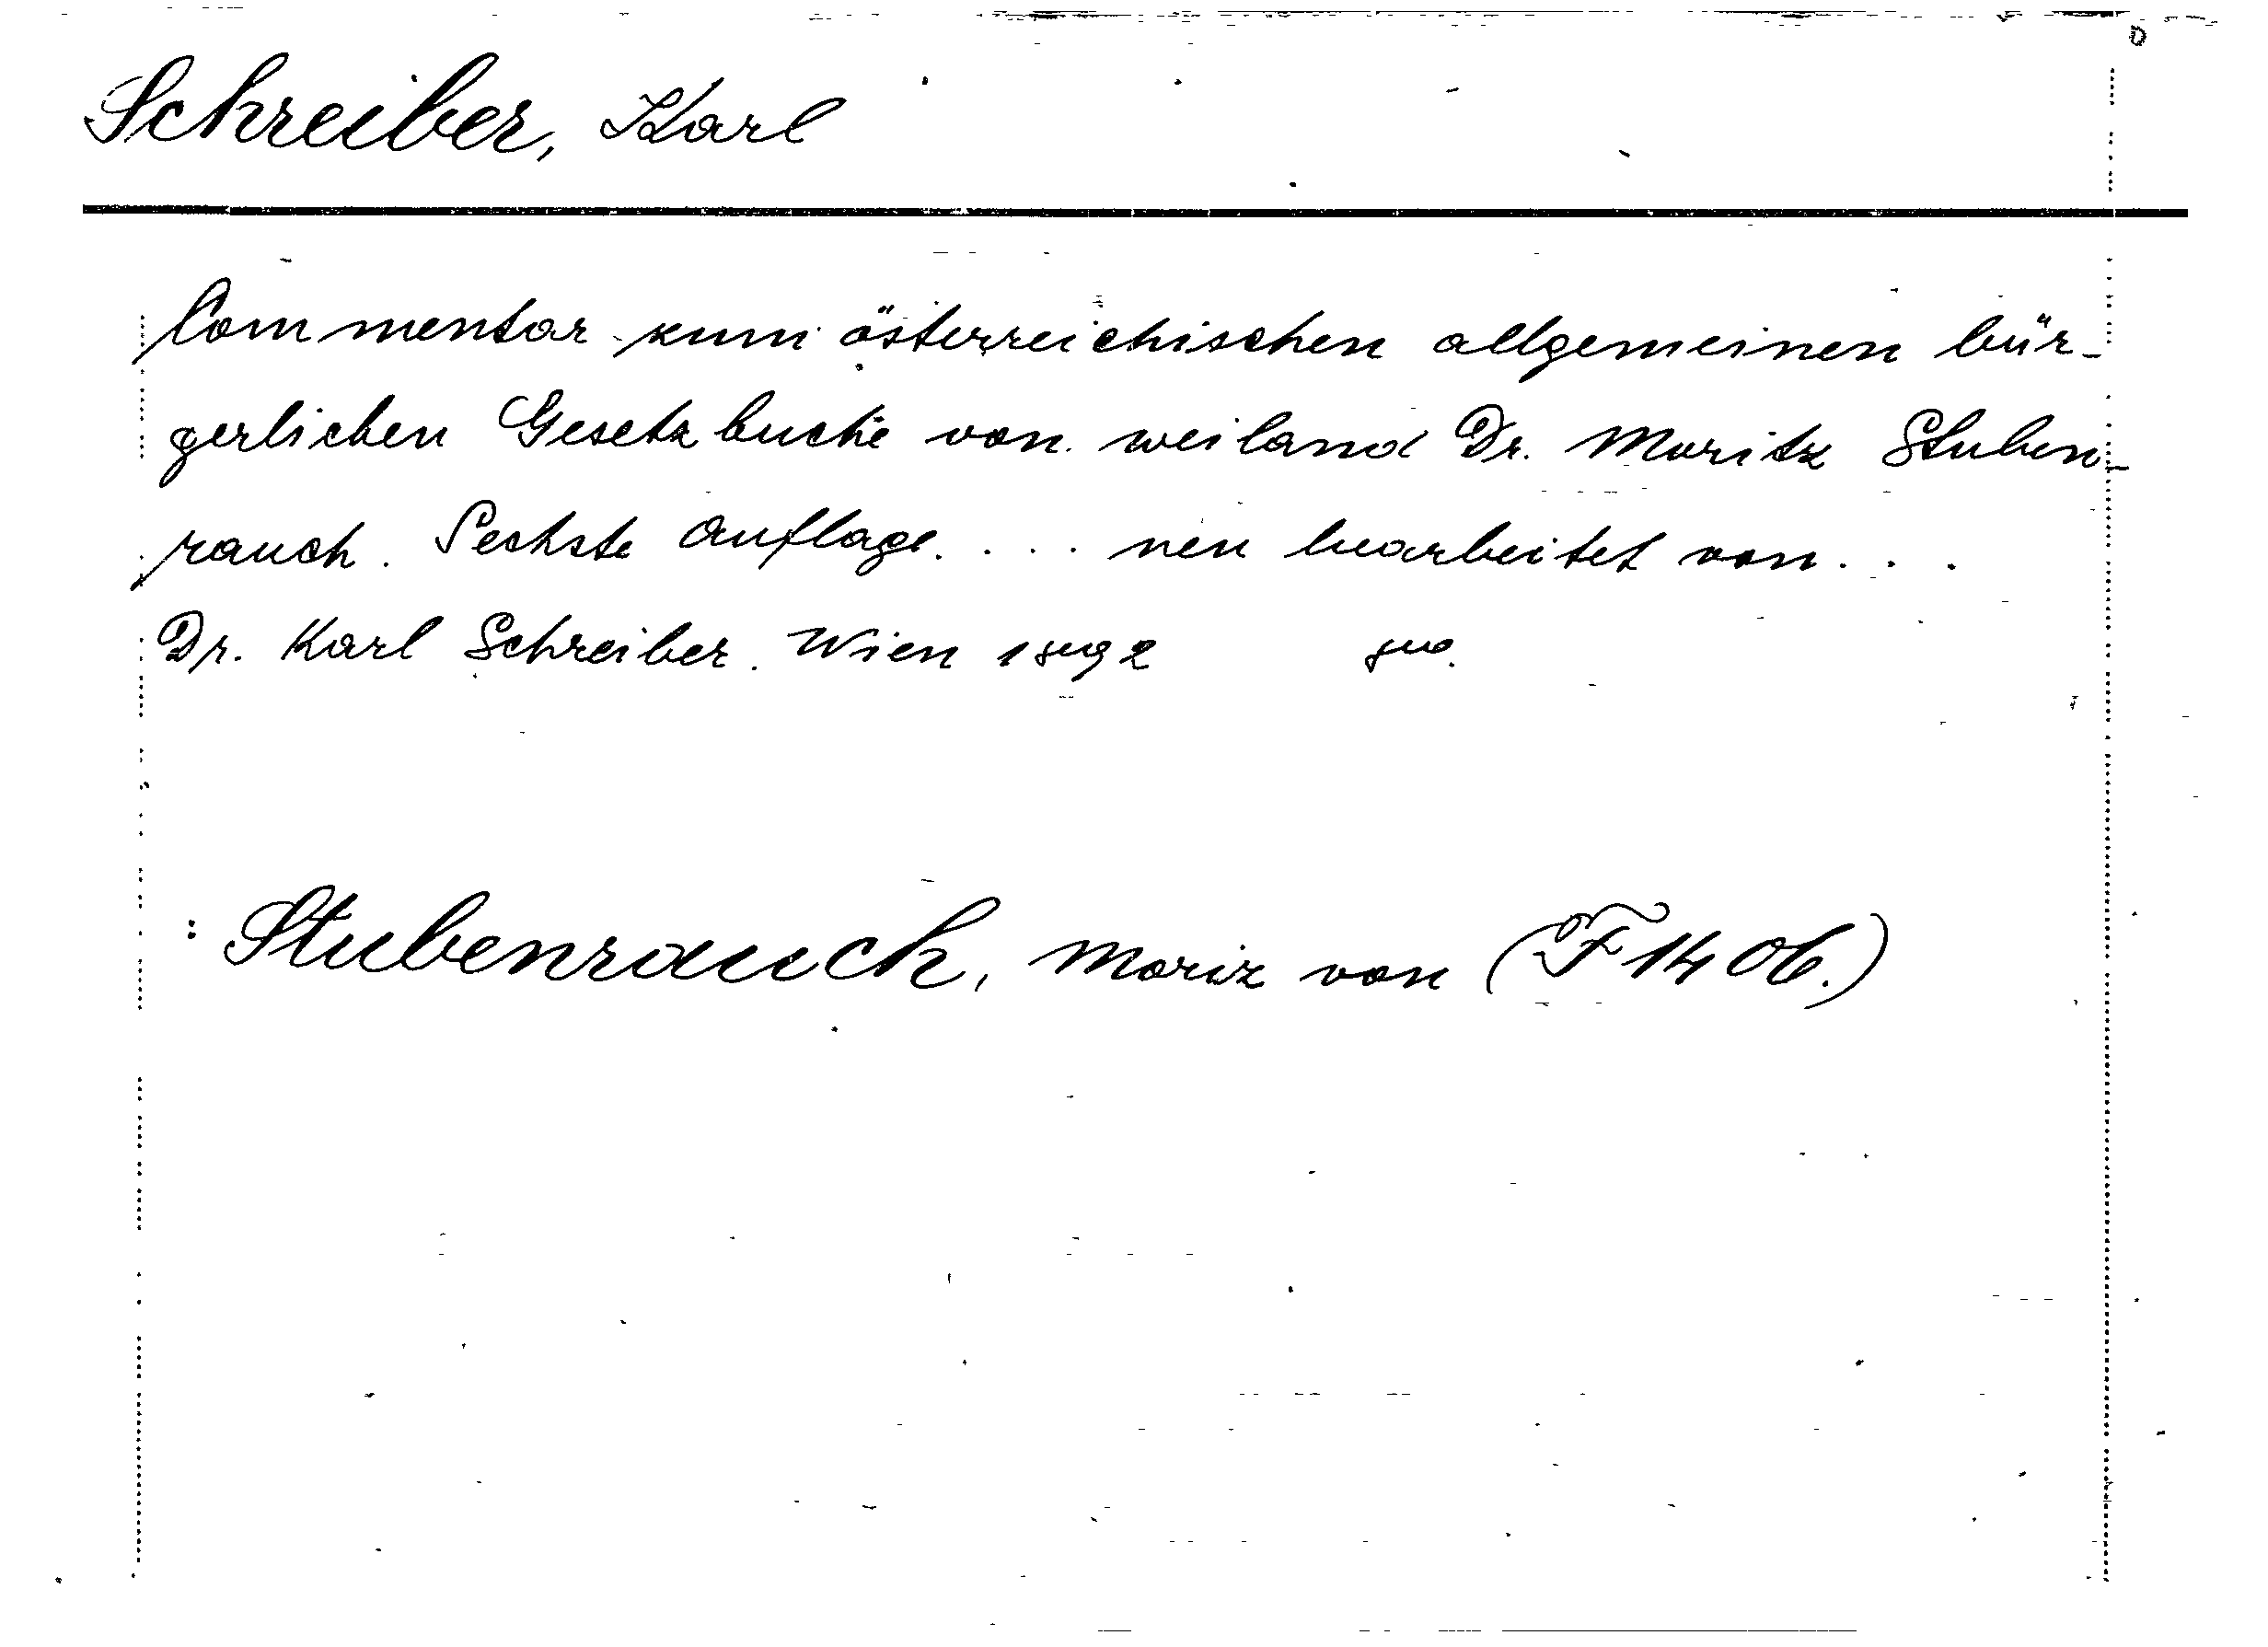 Schreiber, Karl
Commentar zum österreichischen allgemeinen bür-
gerlichen Gesetzbuche von weiland Dr. Moritz Stuben-
rauch. Sechste Auflage. . . . neu bearbeitet von . . .
Dr. Karl Schreiber. Wien 1892 8vo.
: Stubenrauch, Moriz von (F 1406.)